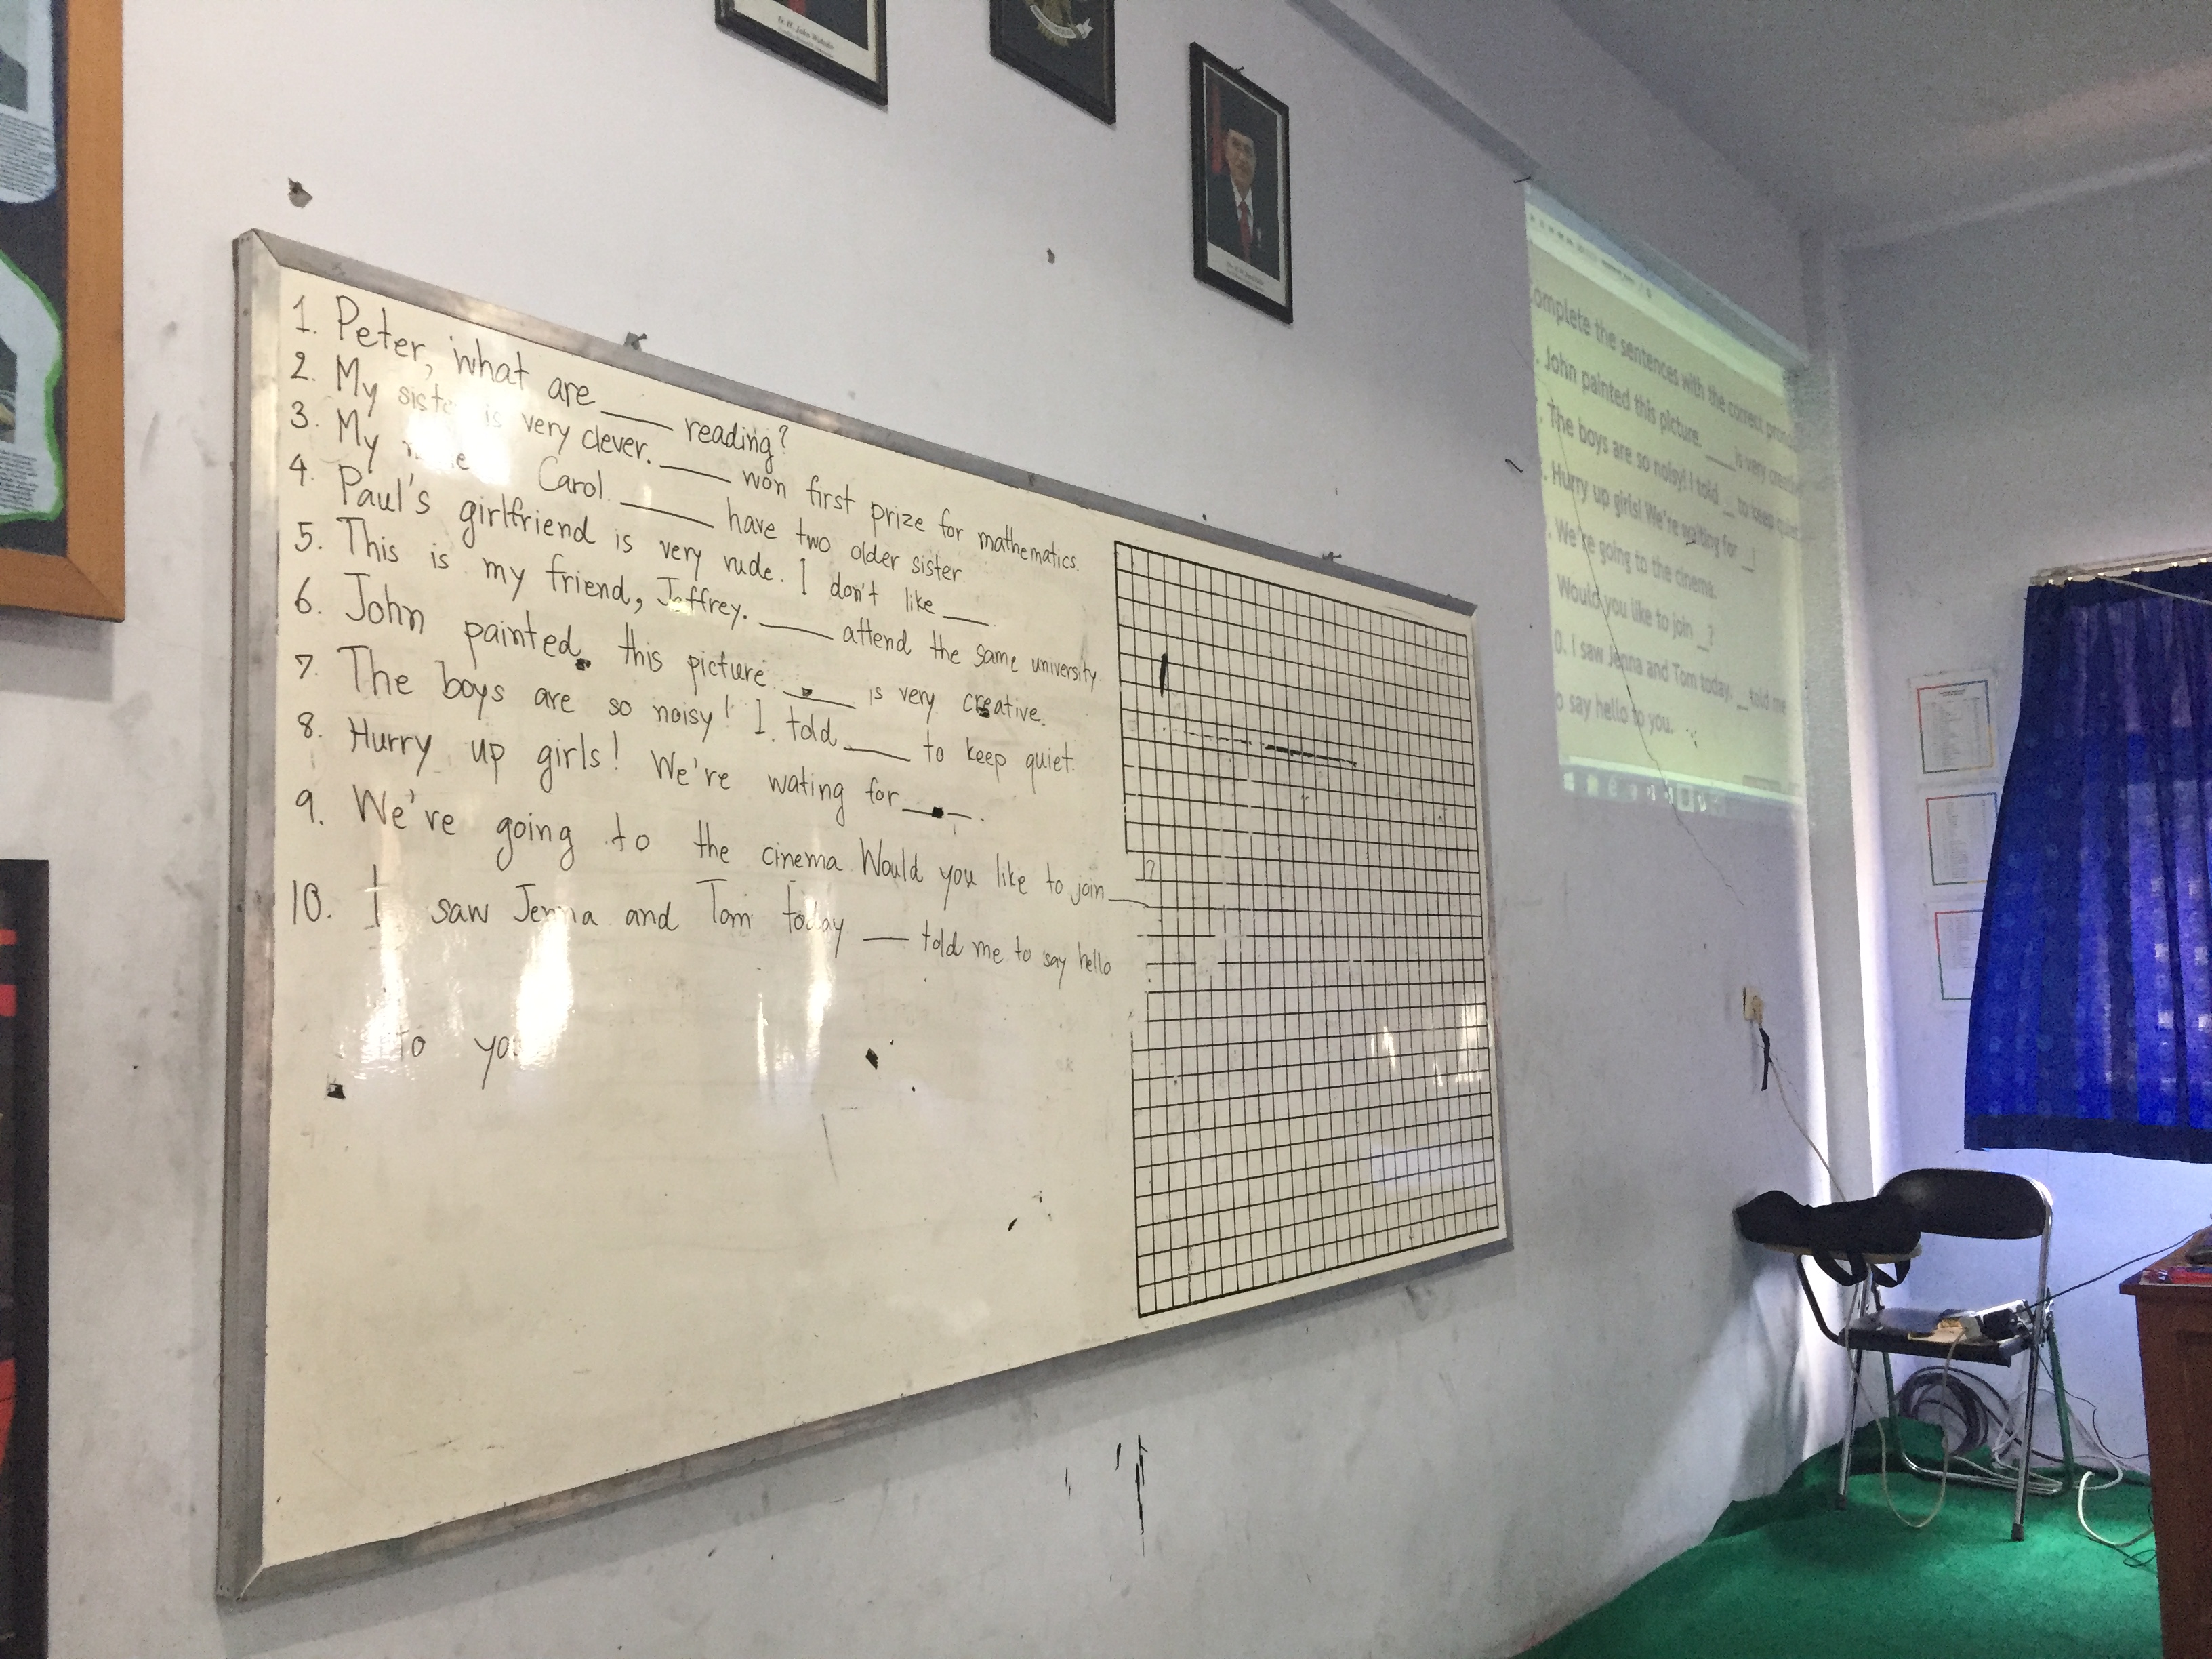 1. Peter, what are ____ reading?
2. My sister is very clever. ____ won first prize for mathematics.
3. My Carol. ____ have two older sister
4. Paul's girlfriend is very rude. I don't like ____.
5. This is my friend, Jeffrey. ____ attend the same university
6. John painted this picture. ____ is very creative.
7. The boys are so noisy! I told ____ to keep quiet.
8. Hurry up girls! We're wating for ____.
9. We're going to the cinema Would you like to join ____?
10. I saw Jenna and Tom today ____ told me to say hello
to you
omplete the sentences with the correct
. John painted this picture. ____ is very
. The boys are so noisy! I told __ to keep quiet
. Hurry up girls! We're waiting for __!
. We're going to the cinema.
Would you like to join __?
0. I saw Jenna and Tom today. __ told me
o say hello to you.